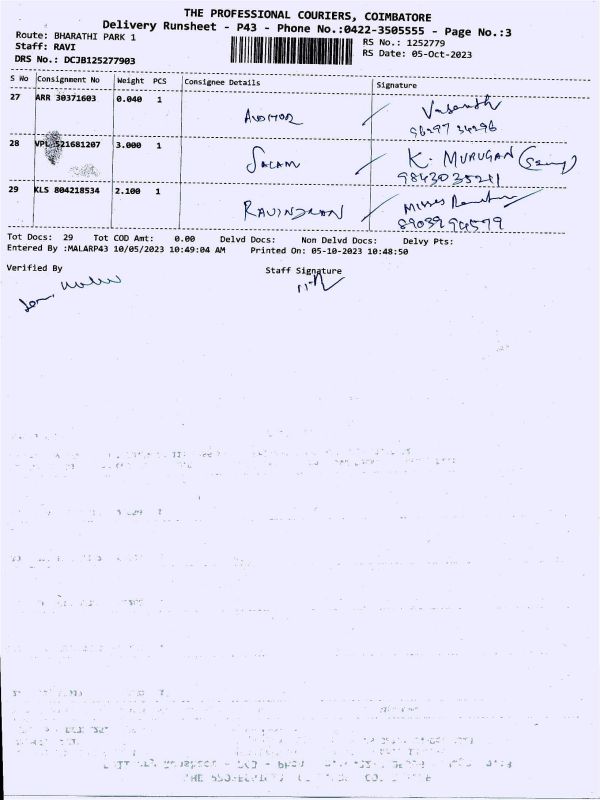 THE PROFESSIONAL COURIERS, COIMBATORE
Delivery Runsheet - P43 - Phone No.:0422-3505555 - Page No.:3
Route: BHARATHI PARK 1
RS No.: 1252779
Staff: RAVI
RS Date: 05-Oct-2023
DRS No.: DCJB125277903
S No Consignment No Weight PCS Consignee Details Signature
27 ARR 30371603 0.040 1 AUDITOR Vasanth
28 VPL 521681207 3.000 1 SALAM K. MURUGAN
9843035211
29 KLS 804218534 2.100 1 RAVINDRAN
8903994579
Tot Docs: 29 Tot COD Amt: 0.00 Delvd Docs: Non Delvd Docs: Delvy Pts:
Entered By :MALARP43 10/05/2023 10:49:04 AM Printed On: 05-10-2023 10:48:50
Verified By Staff Signature